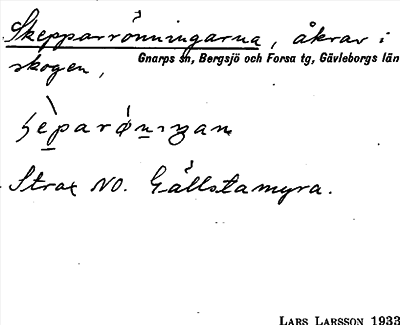 Skepparrönningarna, åkrar i
Gnarps sn, Bergsjö och Forsa tg, Gävleborgs län
skogen,
Strax NO. Gållstamyra.
LARS LARSSON 1933